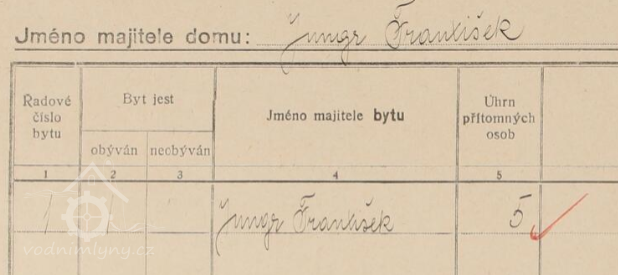 Jméno majitele domu: Jungr František
Řadové číslo bytu
Byt jest
obýván
neobýván
Jméno majitele bytu
Úhrn přítomných osob
1 2 3 4 5
1 Jungr František 5
vodnimlyny.cz